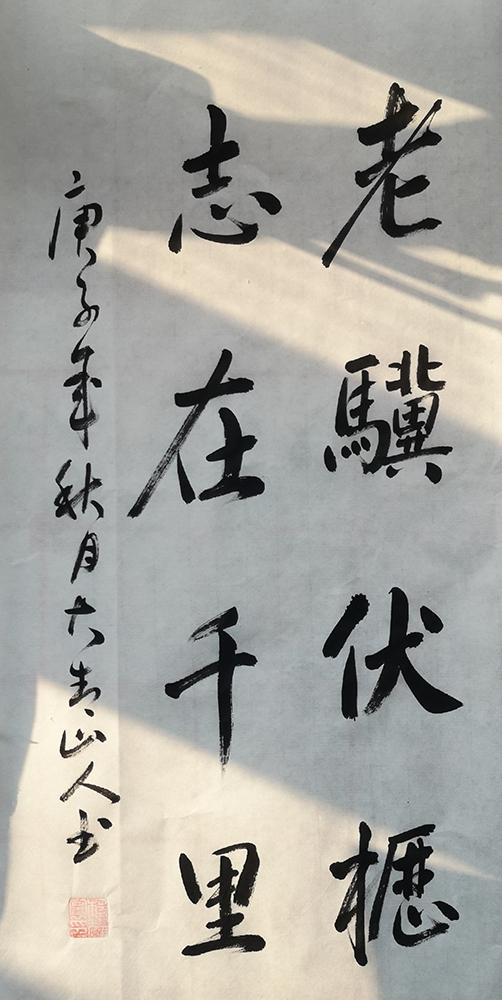 老驥伏櫪
志在千里
庚子年秋月大青山人书